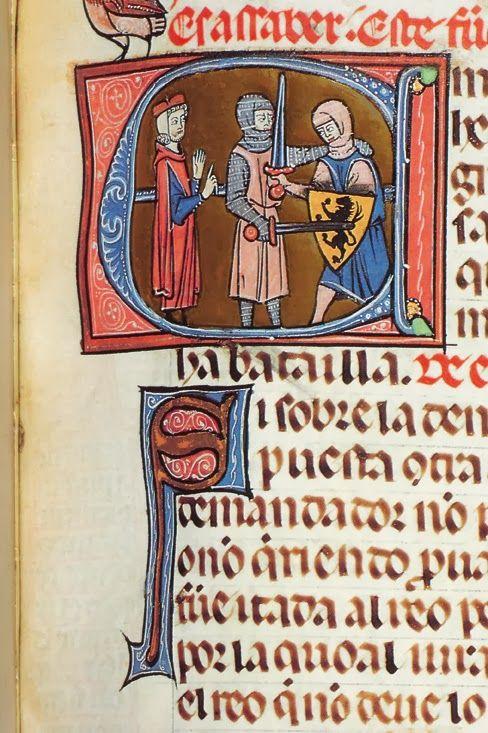 Es asaber. Este fu
m
he
gi
sa
qu
m
ha batailla. De e
Si sobre la dem
puesta ꝯtra
demandador nõ p
o nõ q̃riendo ꝓua
al reo po
por la quoal iura
el reo q̃ nõ deue lo